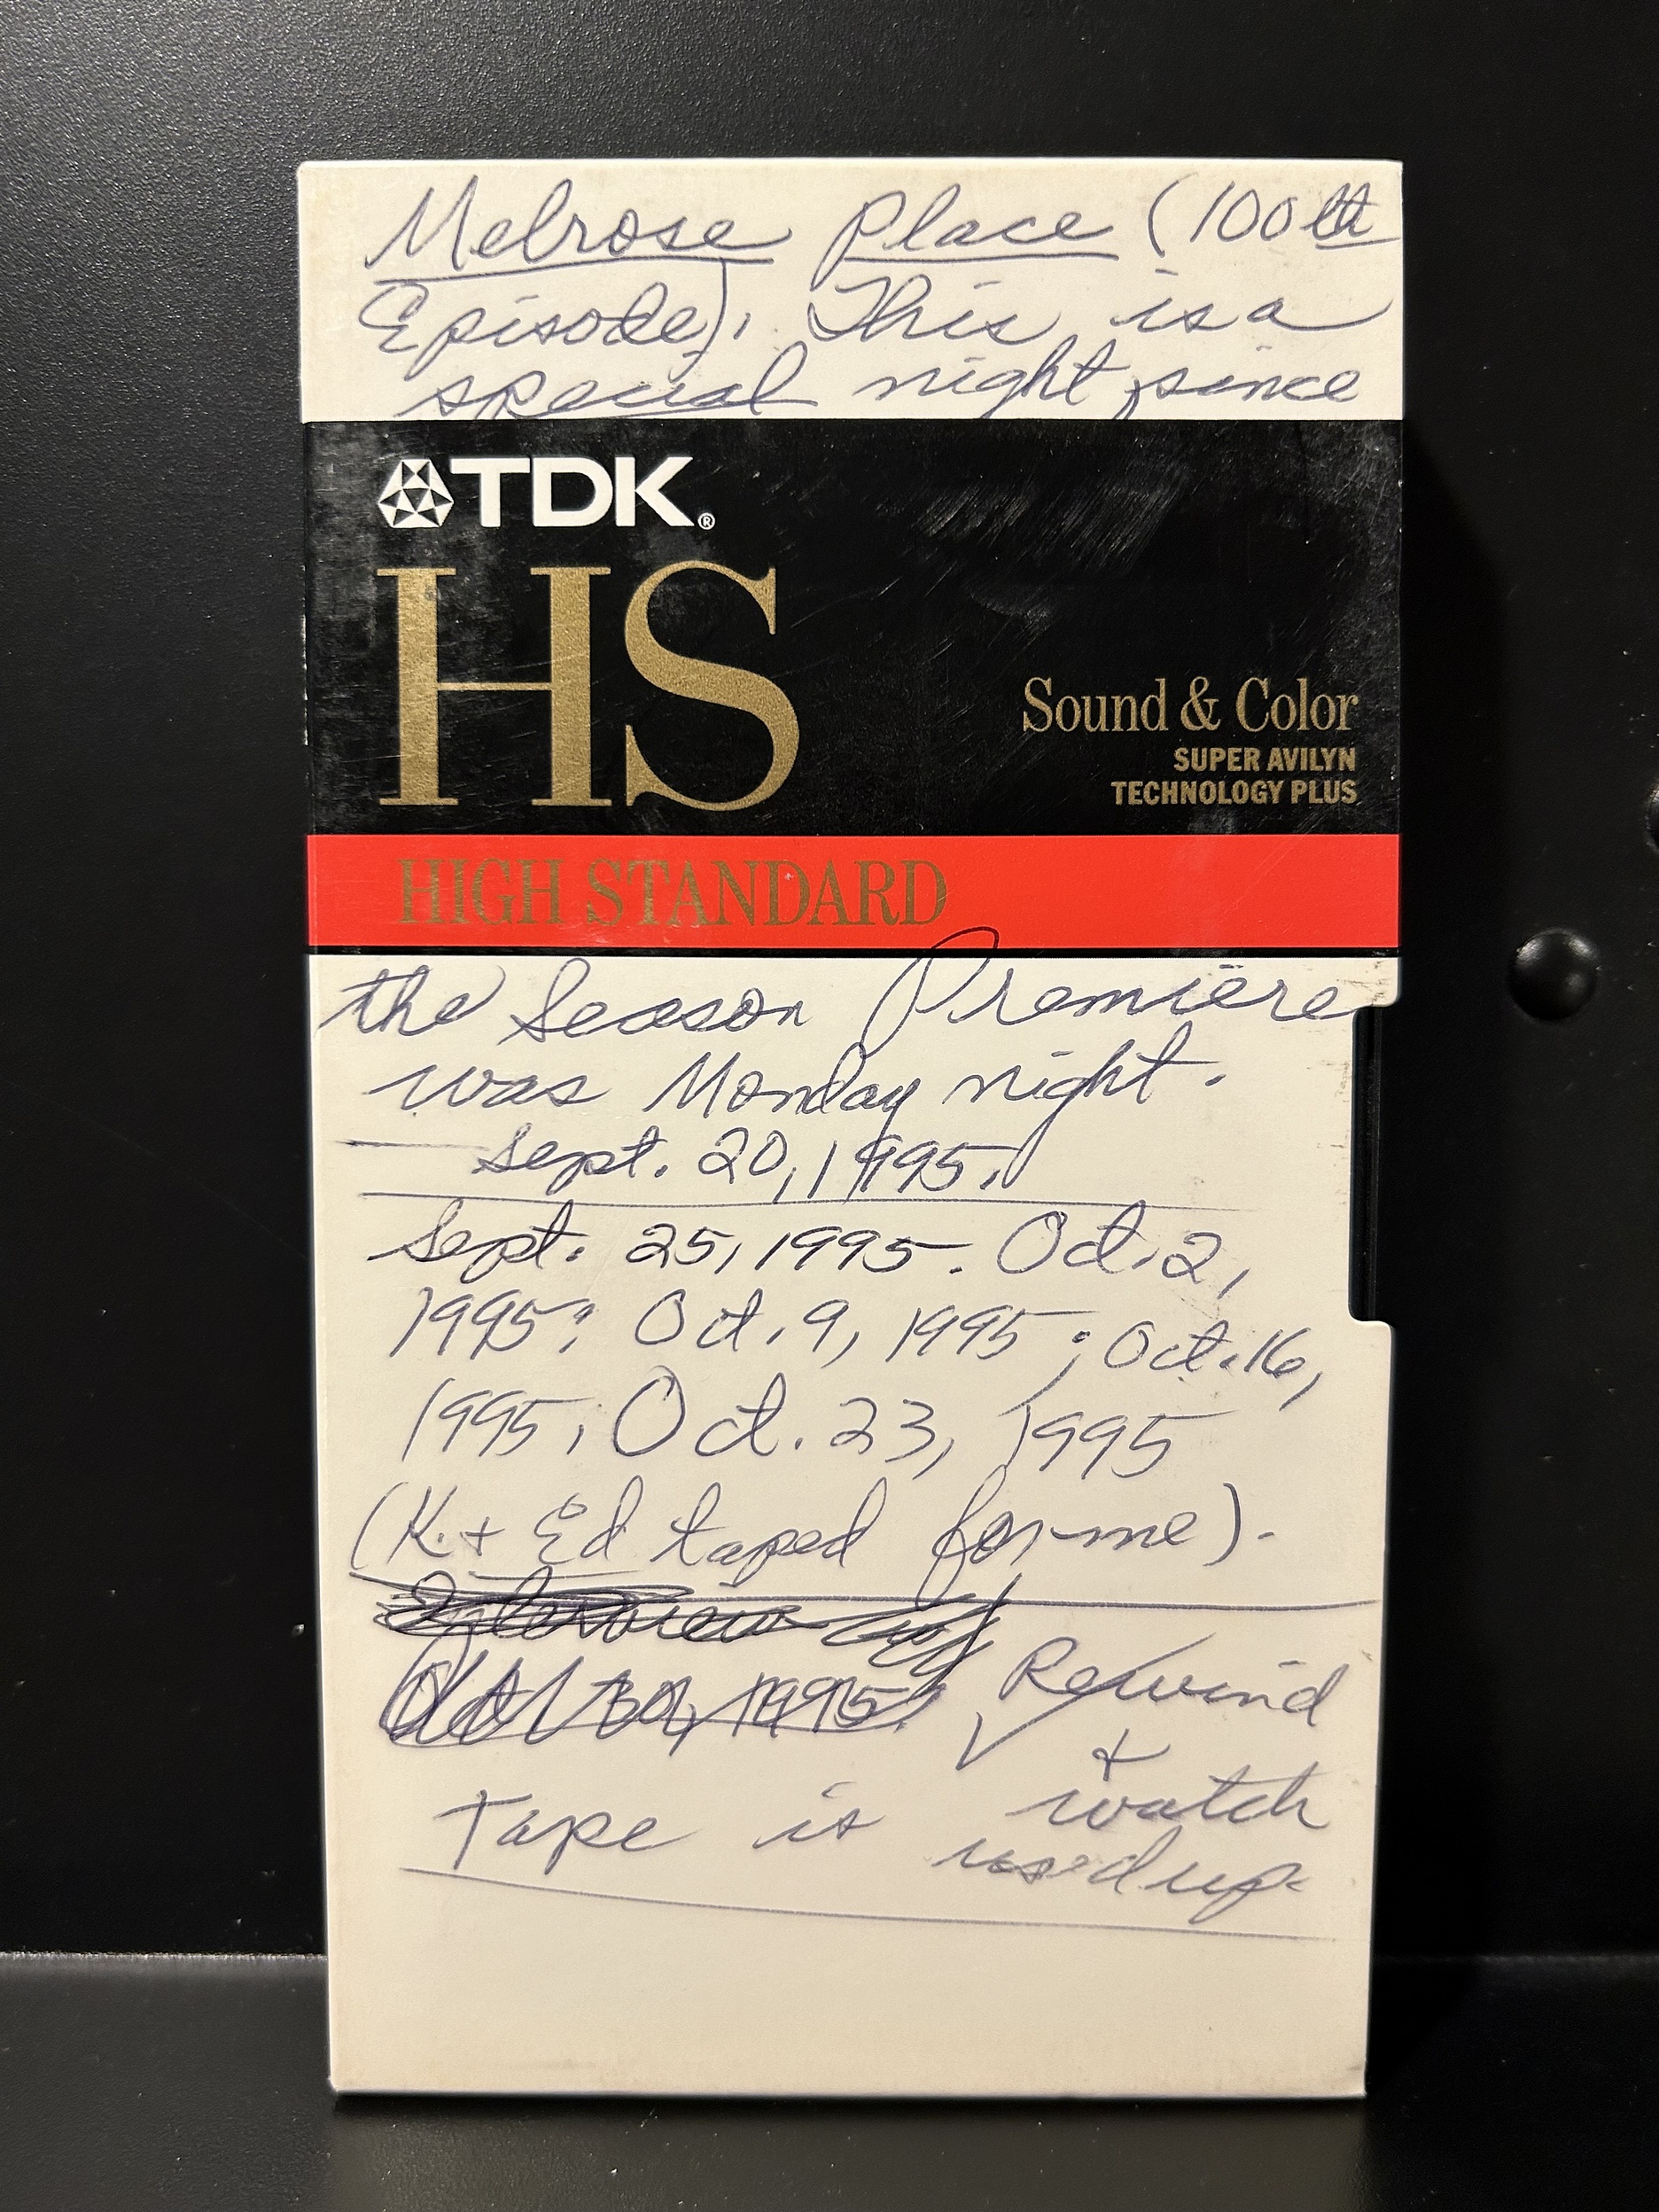 Melrose Place (100th
Episode). This is a
special night since
TDK®
HS
Sound & Color
SUPER AVILYN
TECHNOLOGY PLUS
HIGH STANDARD
the Season Premiere
was Monday night.
Sept. 20, 1995.
Sept. 25, 1995. Oct. 2,
1995; Oct. 9, 1995; Oct. 16,
1995, Oct. 23, 1995
(K. + Ed taped for me).
Interview
Oct. 30, 1995
Rewind
+
watch
Tape is used up.